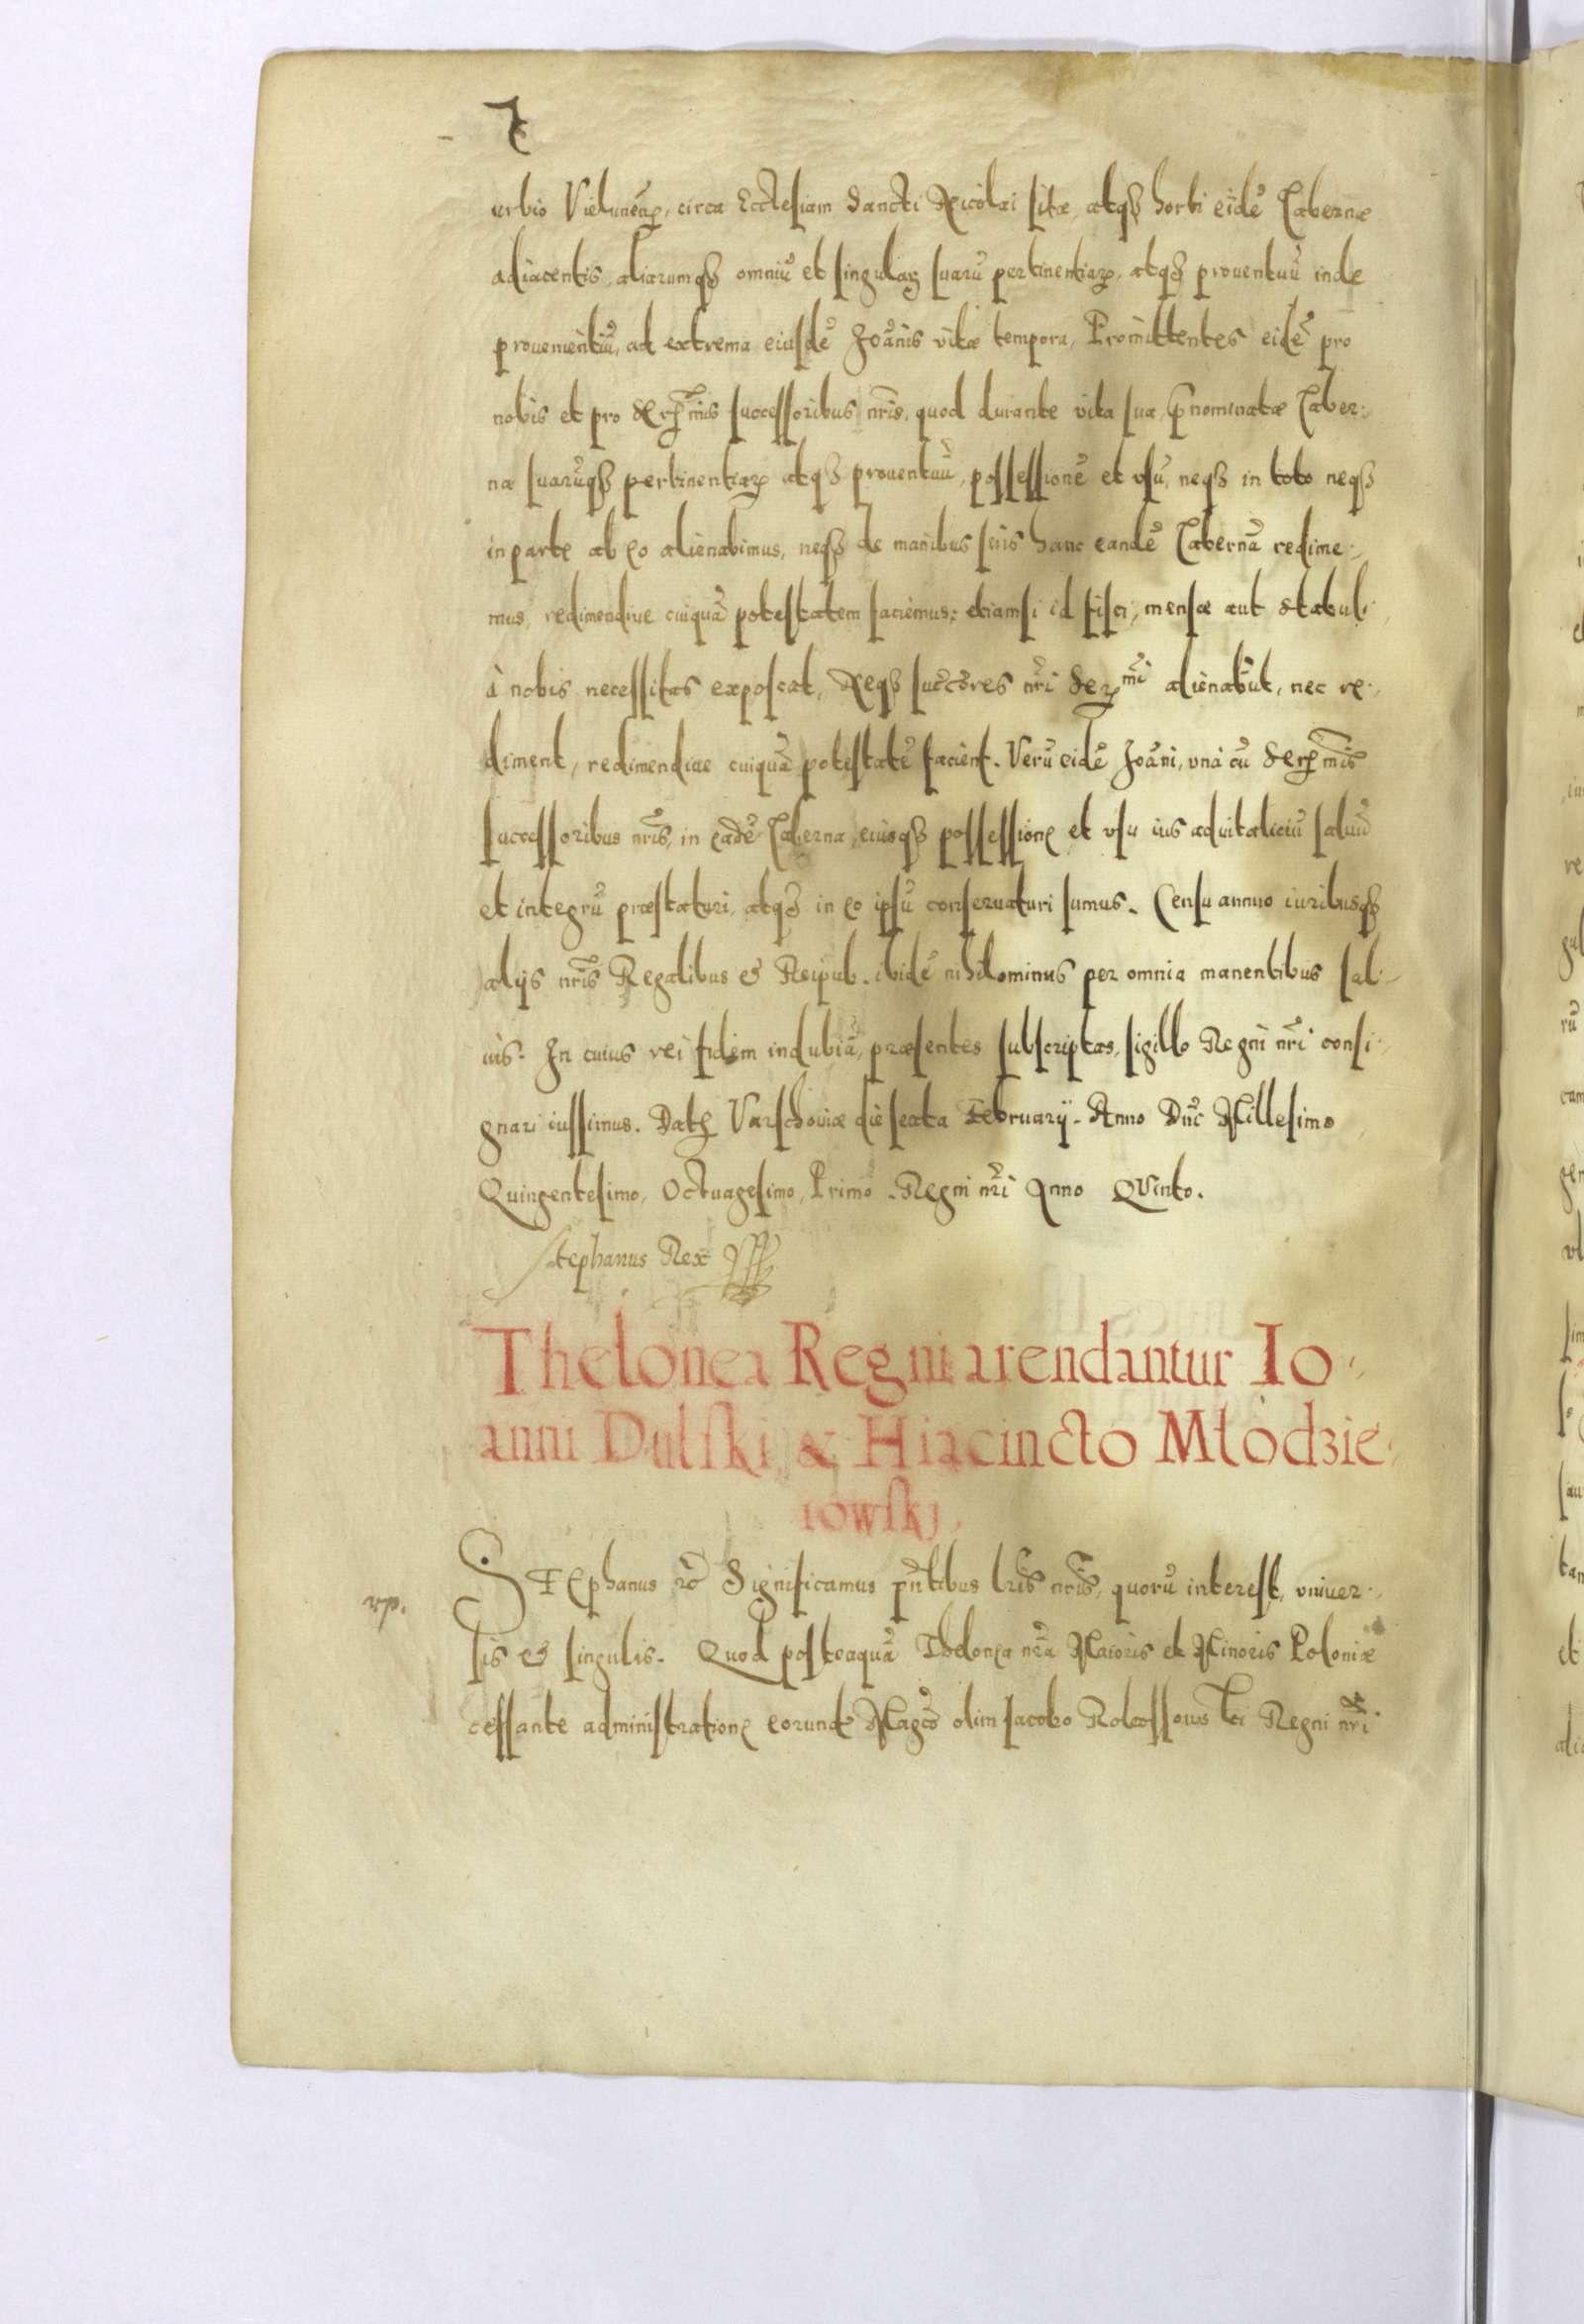 urbio Vieluneñ, circa Ecclesiam Sancti Nicolai sitæ, atqȝ horti eidẽ Tabernæ
adiacentis, aliarumqȝ omniũ et singulaꝝ suarũ pertinentiaꝝ, atqȝ prouentuũ inde
prouenientiũ, ad extrema eiusdẽ Joãnis vitæ tempora, Promittentes eidẽ pro
nobis et pro Serꝫmis successoribus nr̃is, quod durante vita sua, p̃nominatæ Taber:
næ suarũqȝ pertinentiaꝝ atqȝ prouentuũ, possessionẽ et vsũ, neqȝ in toto neqȝ
in parte ab eo alienabimus, neqȝ de manibus suis hanc eandẽ Tabernã redime:
mus, redimendiue cuiquã potestatem faciemus: etiamsi id fisci, mensæ aut stabuli
à nobis necessitas exposcat, Neqȝ succ̃ores nr̃i Serꝫmi alienabũt, nec re:
diment, redimendiue cuiquã potestatẽ facient. Verũ eidẽ Joãni, vnà cũ Serꝫmis
successoribus nr̃is, in eadẽ Taberna, eiusqȝ possessione et vsu ius aduitaliciũ saluũ
et integrũ præstaturi, atqȝ in eo ipsũ conseruaturi sumus. Censu annuo iuribusqȝ
alijs nr̃is Regalibus & Reipub. ibidẽ nihilominus per omnia manentibus sal:
uis. In cuius rei fidem indubiã, præsentes subscriptas, sigillo Regni nr̃i consi:
gnari iussimus. Datꝫ Varschouiæ die sexta February. Anno Dñi Millesimo
Quingentesimo, Octuagesimo, Primo. Regni nr̃i Anno Qvinto.
Stephanus Rex
Thelonea Regni arendantur Io
anni Dulski & Hiacincto Młodzie
iowskj
STEphanus &c̃ Significamus pñtibus lr̃is nr̃is, quorũ interest, vniuer:
sis & singulis. Quod posteaquã Thelonea nr̃a Maioris et Minoris Poloniæ
cessante administratione eorundẽ Magc̃o olim Jacobo Rokossows̃ki Regni nr̃i